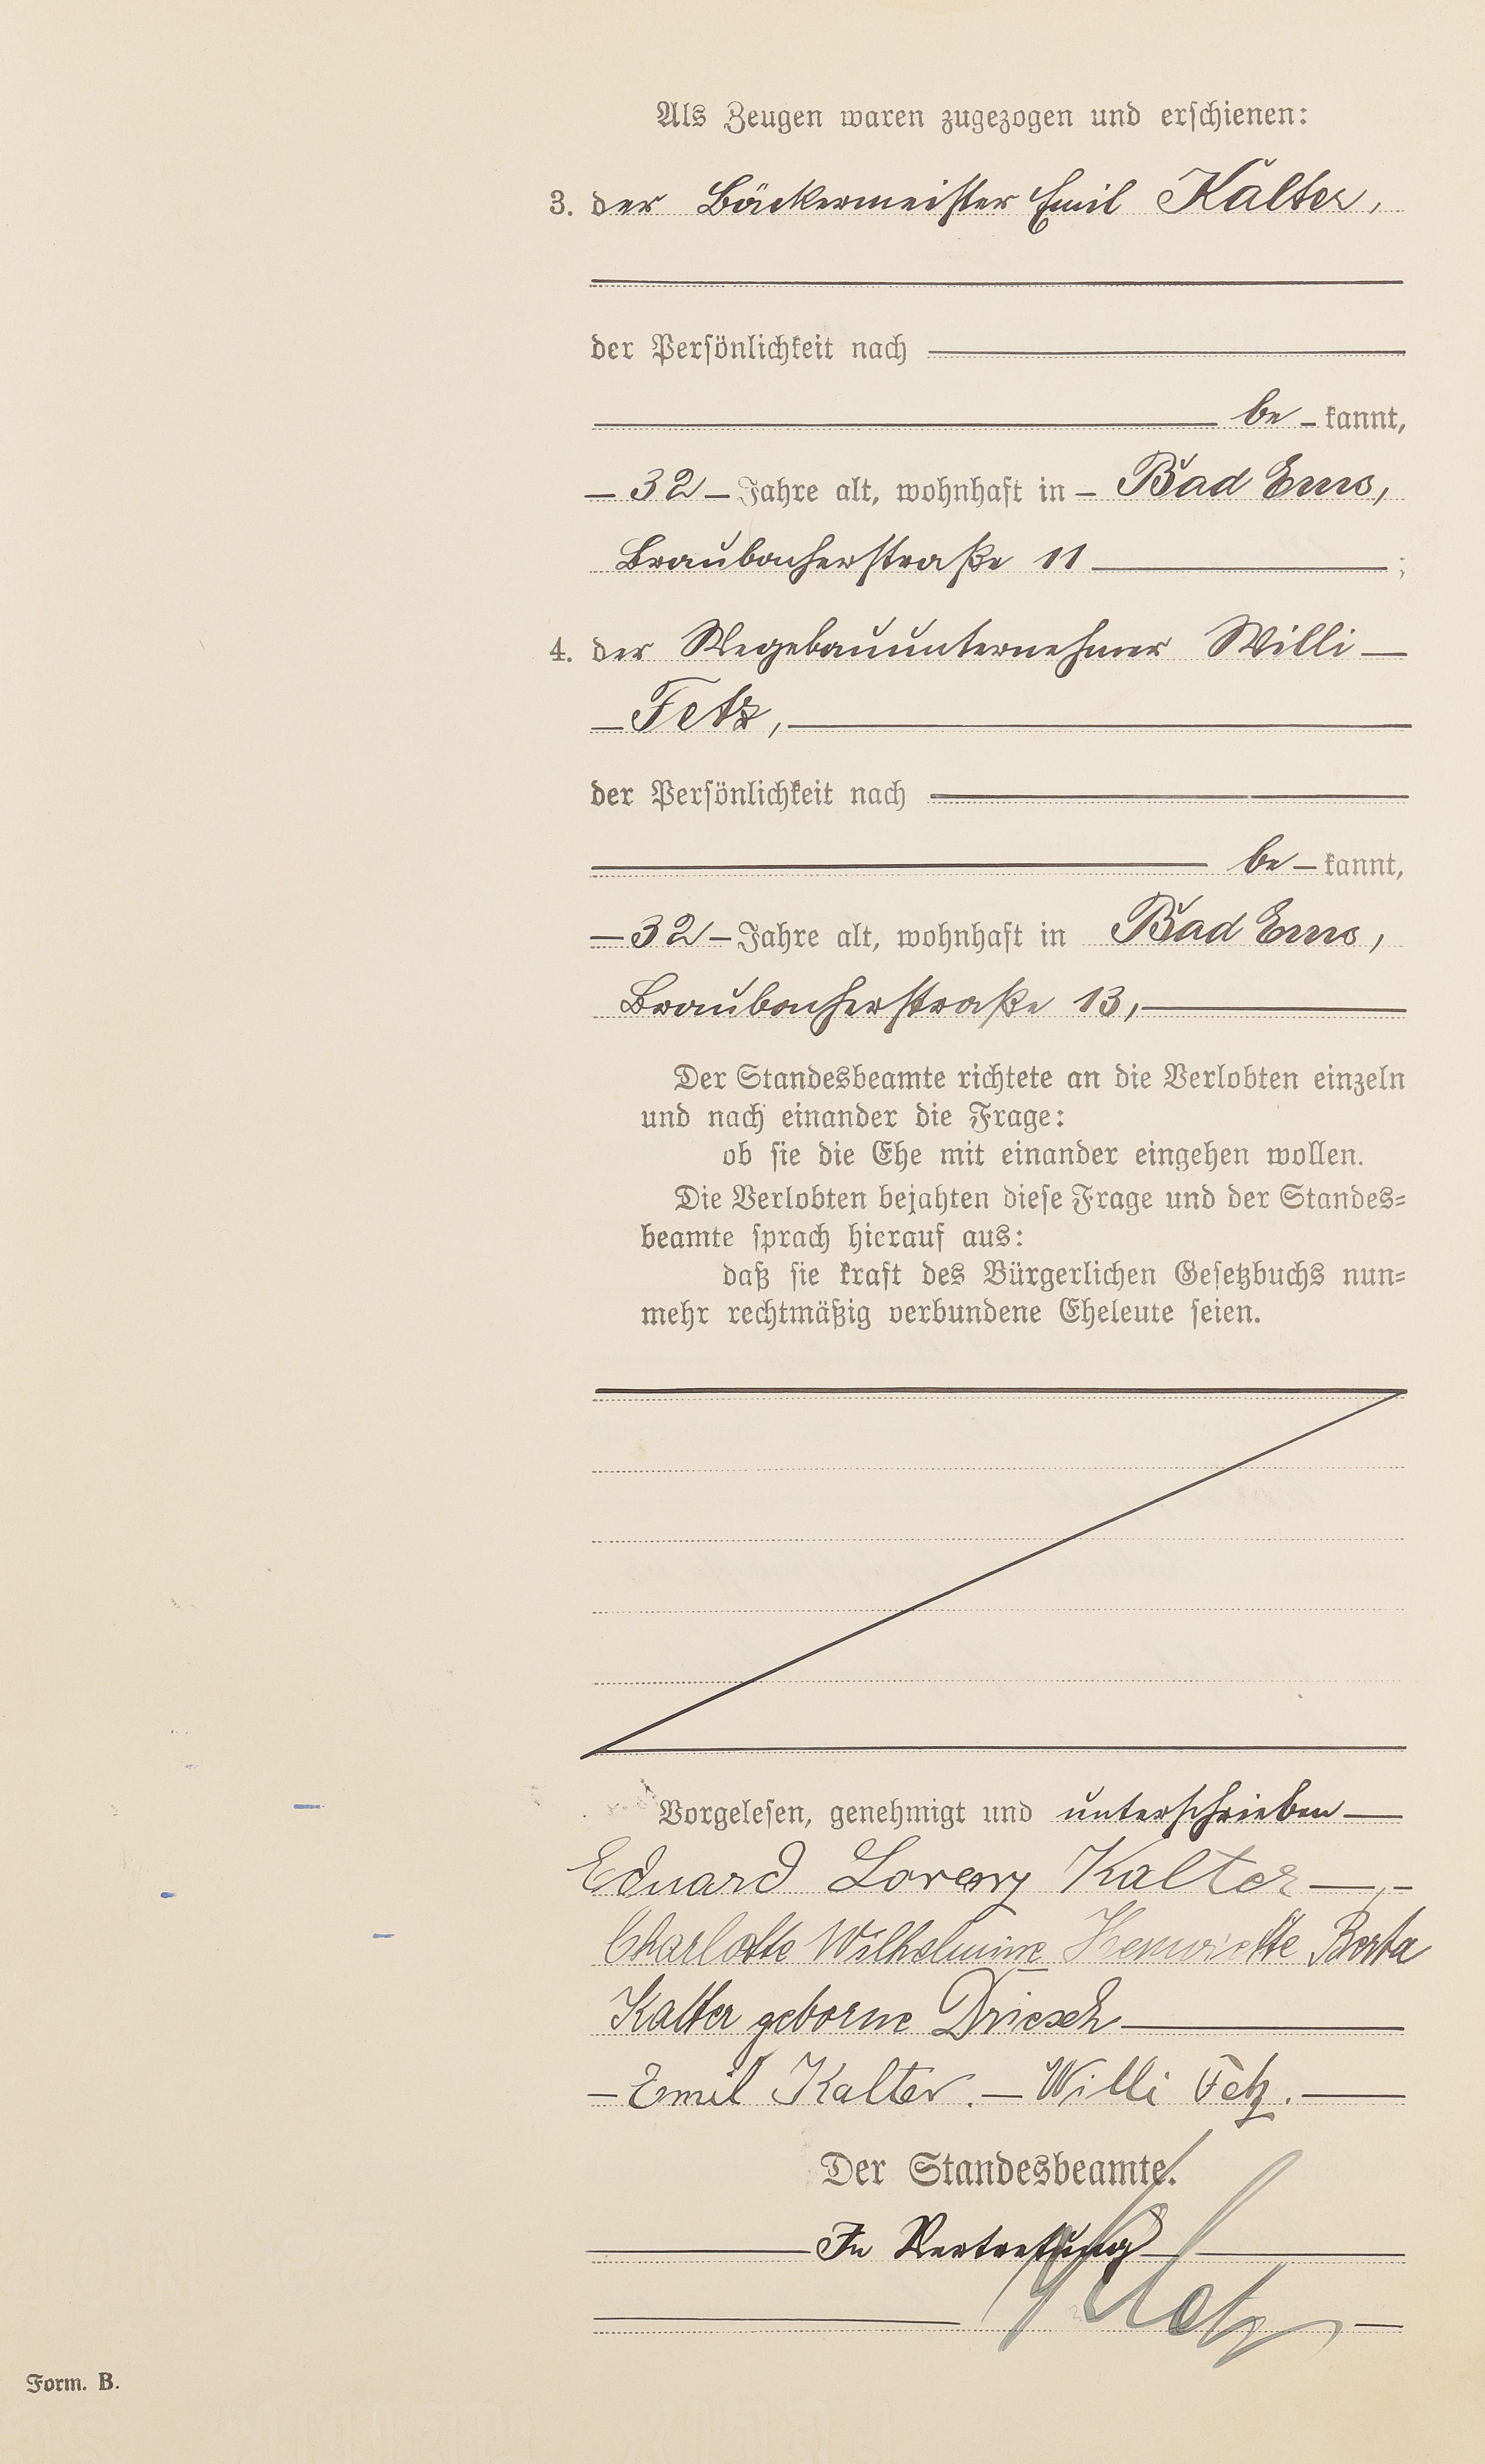 Als Zeugen waren zugezogen und erschienen:
3. der Bäckermeister Emil Kalter,
der Persönlichkeit nach
be-kannt,
-32- Jahre alt, wohnhaft in - Bad Ems,
Braubacherstraße 11 ;
4. der Wegebauunternehmer Willi -
- Fetz,
der Persönlichkeit nach
be-kannt,
-32- Jahre alt, wohnhaft in Bad Ems,
Braubacherstraße 13,
Der Standesbeamte richtete an die Verlobten einzeln
und nach einander die Frage:
ob sie die Ehe mit einander eingehen wollen.
Die Verlobten bejahten diese Frage und der Standes-
beamte sprach hierauf aus:
daß sie kraft des Bürgerlichen Gesetzbuchs nun-
mehr rechtmäßig verbundene Eheleute seien.
Vorgelesen, genehmigt und unterschrieben
Eduard Lorenz Kalter
Charlotte Wilhelmine Henriette Berta
Kalter geborne Driesch
- Emil Kalter. - Willi Fetz.
Der Standesbeamte.
In Vertretung
Form. B.